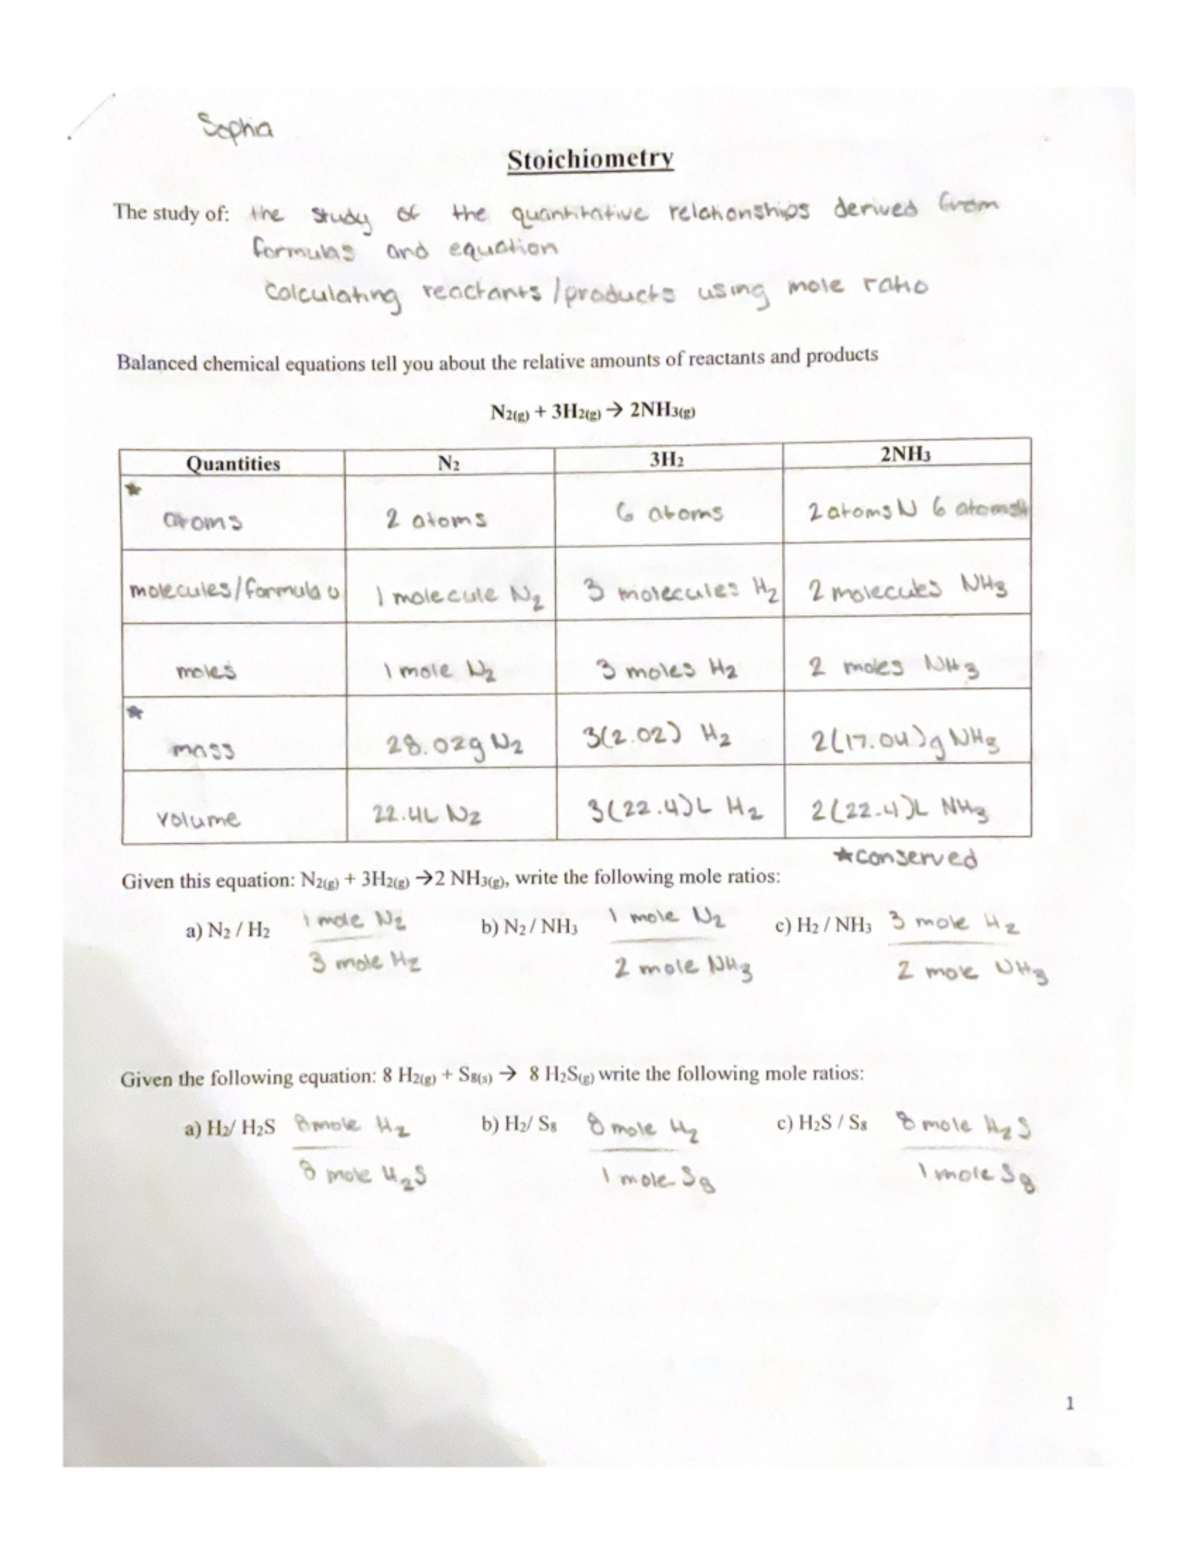 Sophia
Stoichiometry
The study of: the study of the quantitative relationships derived from
formulas and equation
calculating reactants/products using mole ratio
Balanced chemical equations tell you about the relative amounts of reactants and products
N2(g) + 3H2(g) → 2NH3(g)
Quantities N2 3H2 2NH3
★ atoms 2 atoms 6 atoms 2 atoms N 6 atoms H
molecules/formula u 1 molecule N2 3 molecules H2 2 molecules NH3
moles 1 mole N2 3 moles H2 2 moles NH3
★ mass 28.02g N2 3(2.02) H2 2(17.04)g NH3
volume 22.4L N2 3(22.4)L H2 2(22.4)L NH3
★conserved
Given this equation: N2(g) + 3H2(g) →2 NH3(g), write the following mole ratios:
a) N2 / H2 1 mole N2 b) N2 / NH3 1 mole N2 c) H2 / NH3 3 mole H2
3 mole H2 2 mole NH3 2 mole NH3
Given the following equation: 8 H2(g) + S8(s) → 8 H2S(g) write the following mole ratios:
a) H2/ H2S 8 mole H2 b) H2/ S8 8 mole H2 c) H2S / S8 8 mole H2S
8 mole H2S 1 mole S8 1 mole S8
1